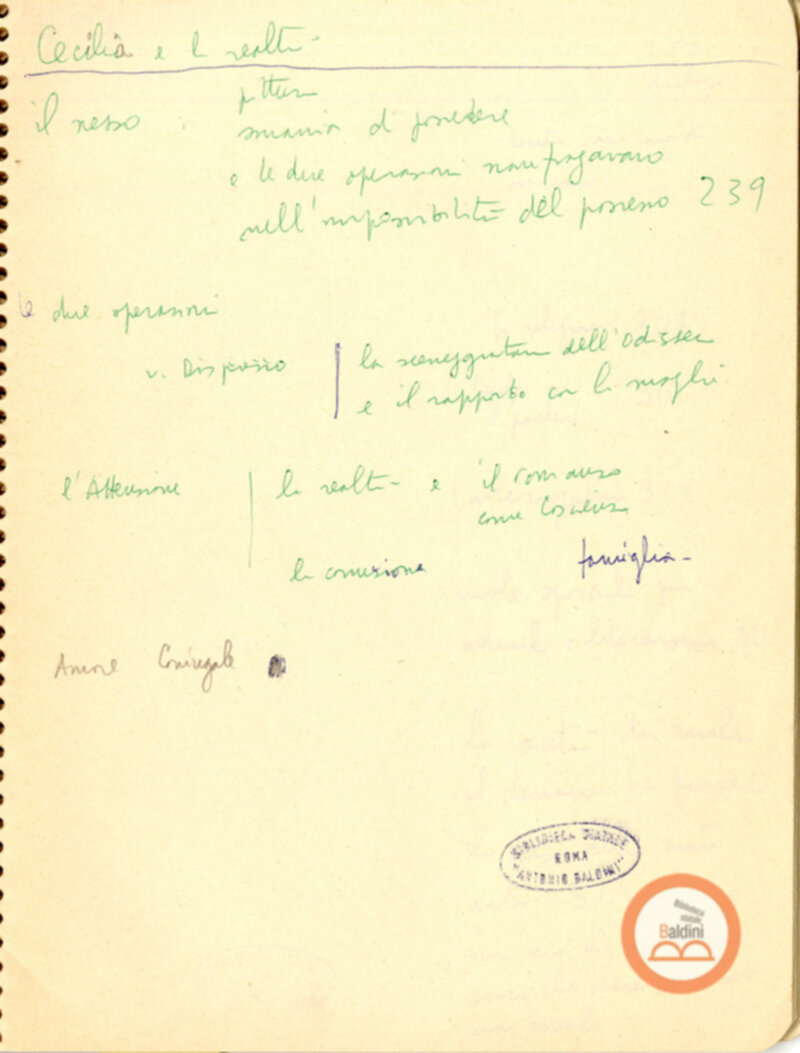 Cecilia e la realtà
il nesso : pittura
smania di possedere
e le due operazioni naufragavano
nell'impossibilità del possesso 239
le due operazioni
v. Disprezzo
la sceneggiatura dell'Odissea
e il rapporto con la moglie
l'Attenzione
la realtà e il romanzo
come coscienza
la corruzione famiglia -
Amore Coniugale
BIBLIOTECA STATALE
ROMA
"ANTONIO BALDINI"
Biblioteca
statale
Baldini